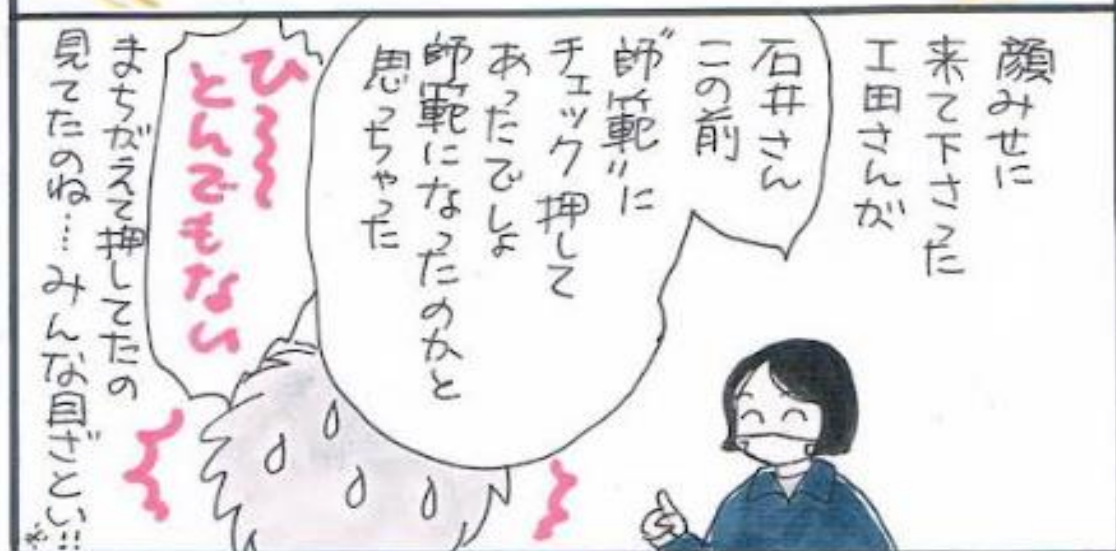 顔みせに
来て下さった
工田さんが
石井さん
この前
"師範"に
チェック押して
あったでしょ
師範になったのかと
思っちゃった
ひ〜〜〜
とんでもない
まちがえて押してたの
見てたのね…みんな目ざとい!!